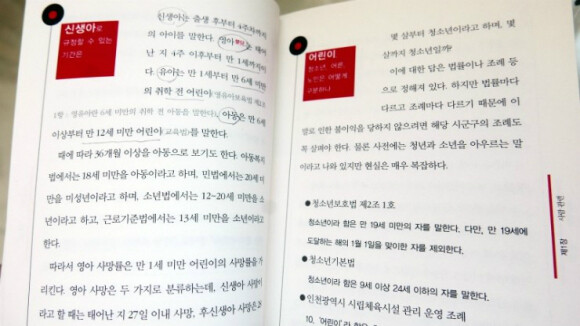 신생아로
규정할 수 있는
기간은
신생아는 출생 후부터 4주차까지
의 아이를 말한다. 영아는 태어
난 지 4주 이후부터 만 1세까지이
다. 유아는 만 1세부터 만 6세미만
의 취학 전 어린아
1항 : 영유아란 6세 미만의 취학 전 아동을 말한다). 아동은 만 6세
이상부터 만 12세 미만 어린아 교육법)를 말한다.
때에 따라 36개월 이상을 아동으로 보기도 한다. 아동복지
법에서는 18세 미만을 아동이라고 하며, 민법에서는 20세 미
만을 미성년이라고 하며, 소년법에서는 12~20세 미만을 소
년이라고 하고, 근로기준법에서는 13세 미만을 소년이라고
한다.
따라서 영아 사망률은 만 1세 미만 어린이의 사망률을 가
리킨다. 영아 사망은 두 가지로 분류하는데, 신생아 사망이
라고 할 때는 태어난 지 27일 이내 사망, 후신생아 사망은 28
어린이
청소년 어른,
노인은 어떻게
구분하나
몇 살부터 청소년이라고 하며, 몇
살까지 청소년일까?
이에 대한 답은 법률이나 조례 등
으로 정해져 있다. 하지만 법률마다
다르고 조례마다 다르기 때문에 이
말로 인한 불이익을 당하지 않으려면 해당 시군구의 조례도
꼭 살펴야 한다. 물론 사전에는 청년과 소년을 아우르는 말
이라고 나와 있지만 현실은 매우 복잡하다.
● 청소년보호법 제2조 1호
청소년이라 함은 만 19세 미만의 자를 말한다. 다만, 만 19세에
도달하는 해의 1월 1일을 맞이한 자를 제외한다.
● 청소년기본법
청소년이라 함은 9세 이상 24세 이하의 자를 말한다.
● 인천광역시 시립체육시설 관리 운영 조례
10. '어린이'라 함은
사람 관련
제1장